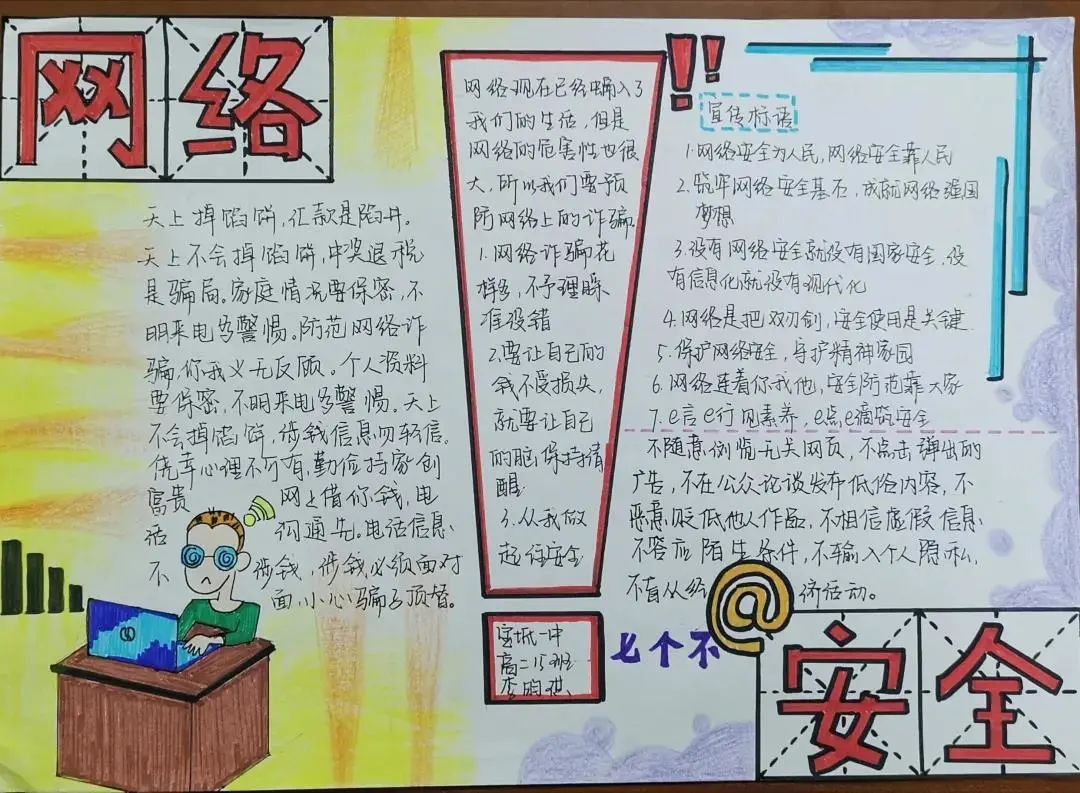 网络
天上掉馅饼,汇款是陷井。
天上不会掉馅饼,中奖退税
是骗局。家庭情况要保密,不
明来电多警惕。防范网络诈
骗,你我义无反顾。个人资料
要保密,不明来电多警惕。天上
不会掉馅饼,涉钱信息勿轻信。
侥幸心理不可有,勤俭持家创
富贵 网上借你钱,电
话 沟通先。电话信息
不 涉钱,涉钱必须面对
面,小心骗子顶替。
网络现在已经融入了
我们的生活,但是
网络的危害性也很
大,所以我们要预
防网络上的诈骗。
1.网络诈骗花
样多,不予理睬
准没错
2.要让自己的
钱不受损失,
就要让自己
的脑保持清
醒
3.从我做
起 安全
宝坻一中
高二15班
李明
宣传标语
1.网络安全为人民,网络安全靠人民
2.筑牢网络安全基石,成就网络强国
梦想
3.没有网络安全就没有国家安全,没
有信息化就没有现代化
4.网络是把双刃剑,安全使用是关键
5.保护网络安全,守护精神家园
6.网络连着你我他,安全防范靠大家
7.e言e行见素养,e点e滴筑安全
不随意浏览无关网页,不点击弹出的
广告,不在公众论谈发布低俗内容,不
恶意贬低他人作品,不相信虚假信息
不答应陌生条件,不输入个人隐私,
不盲从经@济活动。
七个不
安全